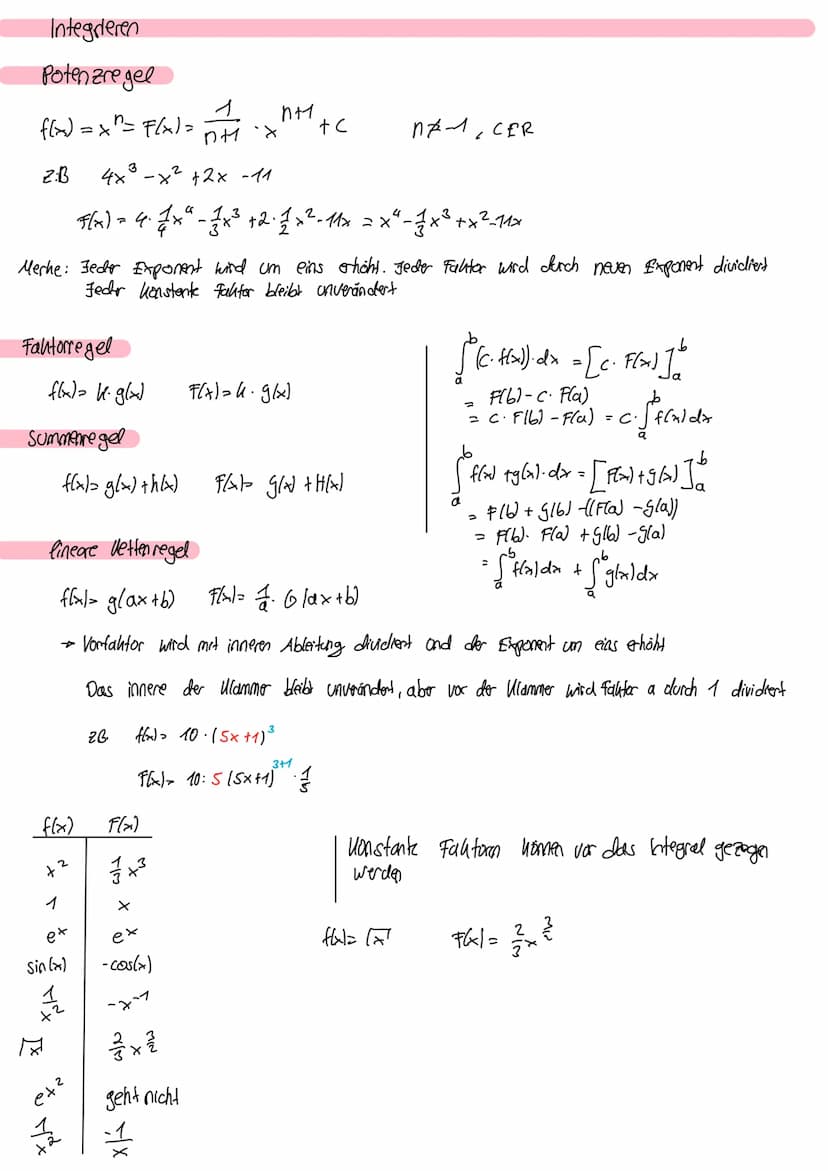 Integrieren
Potenzregel
f(x) = x^n = F(x) = 1/(n+1) · x^(n+1) + c    n ≠ -1, C∈R
z.B 4x³ - x² + 2x - 11
F(x) = 4 · 1/4 x⁴ - 1/3 x³ + 2 · 1/2 x² - 11x = x⁴ - 1/3 x³ + x² - 11x
Merke: Jeder Exponent wird um eins erhöht. Jeder Faktor wird durch neuen Exponent dividiert
Jeder konstante Faktor bleibt unverändert
Faktorregel
f(x) = k · g(x)    F(x) = k · g(x)
Summenregel
f(x) = g(x) + h(x)    F(x) = g(x) + H(x)
∫_a^b (c · f(x)) · dx = [c · F(x)]_a^b
= F(b) - c · F(a)
= c · F(b) - F(a) = c · ∫_a^b f(x) dx
∫_a^b f(x) + g(x) · dx = [F(x) + g(x)]_a^b
= F(b) + g(b) - ((F(a) - g(a))
= F(b) · F(a) + g(b) - g(a)
= ∫_a^b f(x) dx + ∫_a^b g(x) dx
lineare Kettenregel
f(x) = g(ax+b)    F(x) = 1/a · G(ax+b)
→ Vorfaktor wird mit inneren Ableitung dividiert und der Exponent um eins erhöht
Das innere der Klammer bleibt unverändert, aber vor der Klammer wird Faktor a durch 1 dividiert
zB f(x) = 10 · (5x+1)³
F(x) = 10 : 5 (5x+1)^(3+1) · 1/5
f(x)    F(x)
x²    1/3 x³
1    x
e^x    e^x
sin(x)    -cos(x)
1/x²    -x^-1
√x    2/3 x^(3/2)
e^x²    geht nicht
1/x²    -1/x
Konstante Faktoren können vor das Integral gezogen
werden
f(x) = √x    F(x) = 2/3 x^(3/2)